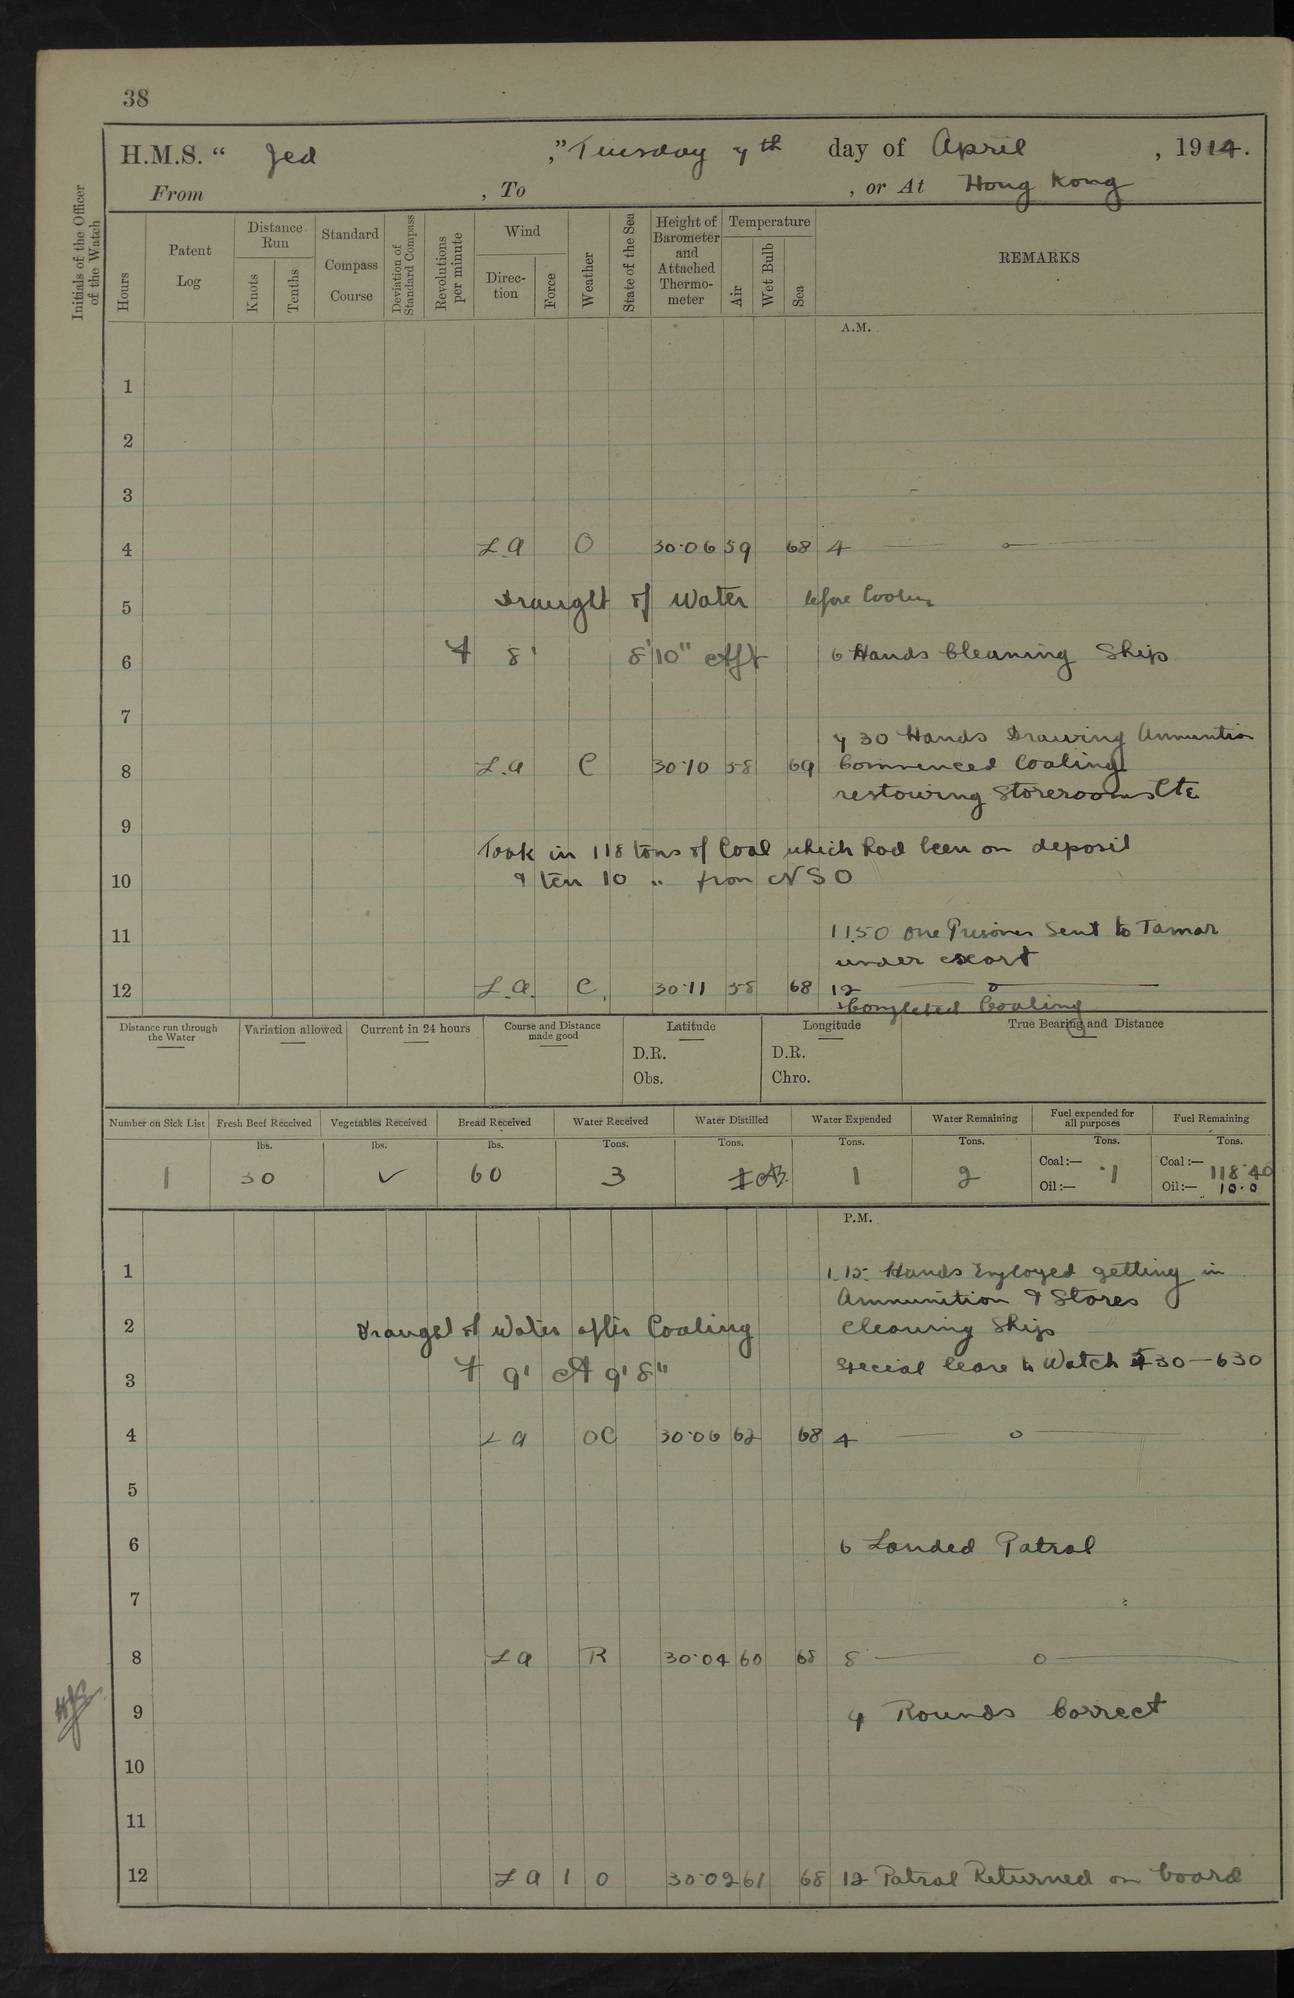 38
H.M.S. “ Jed ,” Tuesday 7th day of April , 1914.
From , To , or At Hong Kong
Initials of the Officer of the Watch
Hours
Patent Log
Distance Run
Knots
Tenths
Standard Compass Course
Deviation of Standard Compass
Revolutions per minute
Wind
Direction
Force
Weather
State of the Sea
Height of Barometer and Attached Thermometer
Temperature
Air
Wet Bulb
Sea
REMARKS
A.M.
1
2
3
4 L.a O 30·06 59 68 4 — o —
5 Draught of Water before Cooling
6 F 8' 8'10" Aft 6 Hands Cleaning Ship
7
7 30 Hands Drawing Ammuntion
8 L.a C 30·10 58 69 Commenced Coaling
restowing Storerooms Etc
9
Took in 118 tons of Coal which had been on deposit
10 & ten 10 " from NSO
11 11.50 one Prisoner Sent to Tamar
under escort
12 L.a. C. 30·11 58 68 12 — o —
Completed Coaling
Distance run through the Water
Variation allowed
Current in 24 hours
Course and Distance made good
Latitude
D.R.
Obs.
Longitude
D.R.
Chro.
True Bearing and Distance
Number on Sick List
Fresh Beef Received
Vegetables Received
Bread Received
Water Received
Water Distilled
Water Expended
Water Remaining
Fuel expended for all purposes
Fuel Remaining
lbs. lbs. lbs. Tons. Tons. Tons. Tons. Tons. Tons.
1 30 ✓ 60 3 1 2
Coal:— ·1 Coal:— 118·40
Oil:— Oil:— 10·0
P.M.
1 1.15 Hands Employed getting in
Ammunition & Stores
2 Draught of Water after Coaling Cleaning Ship
Special leave to Watch 430—630
3 F 9' A 9'8"
4 L a OC 30·06 62 68 4 — o —
5
6 6 Landed Patrol
7
8 L a R 30·04 60 68 8 — o —
9 9 Rounds Correct
10
11
12 L a 1 O 30·02 61 68 12 Patrol Returned on board